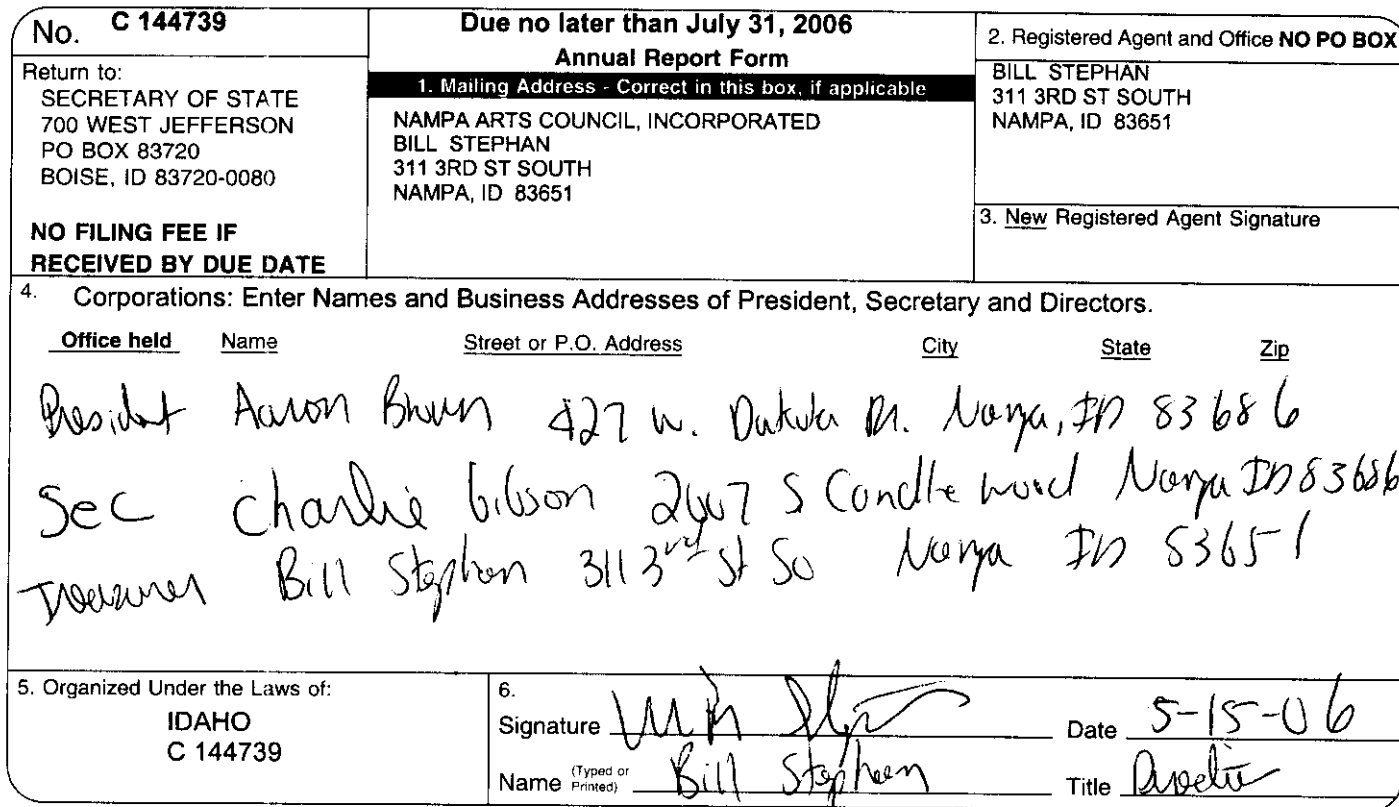 No. C 144739
Return to:
SECRETARY OF STATE
700 WEST JEFFERSON
PO BOX 83720
BOISE, ID 83720-0080
NO FILING FEE IF
RECEIVED BY DUE DATE
Due no later than July 31, 2006
Annual Report Form
1. Mailing Address - Correct in this box, if applicable
NAMPA ARTS COUNCIL, INCORPORATED
BILL STEPHAN
311 3RD ST SOUTH
NAMPA, ID 83651
2. Registered Agent and Office NO PO BOX
BILL STEPHAN
311 3RD ST SOUTH
NAMPA, ID 83651
3. New Registered Agent Signature
4. Corporations: Enter Names and Business Addresses of President, Secretary and Directors.
Office held Name Street or P.O. Address City State Zip
President Aaron Brown 427 W. Dakota Dr. Nampa, ID 83686
Sec Charlie Gibson S Candlewood Nampa ID 83686
Treasurer Bill Stephan 311 3rd St So Nampa ID 83651
5. Organized Under the Laws of:
IDAHO
C 144739
6.
Signature
Date 5-15-06
Name (Typed or Printed) Bill Stephan
Title Director